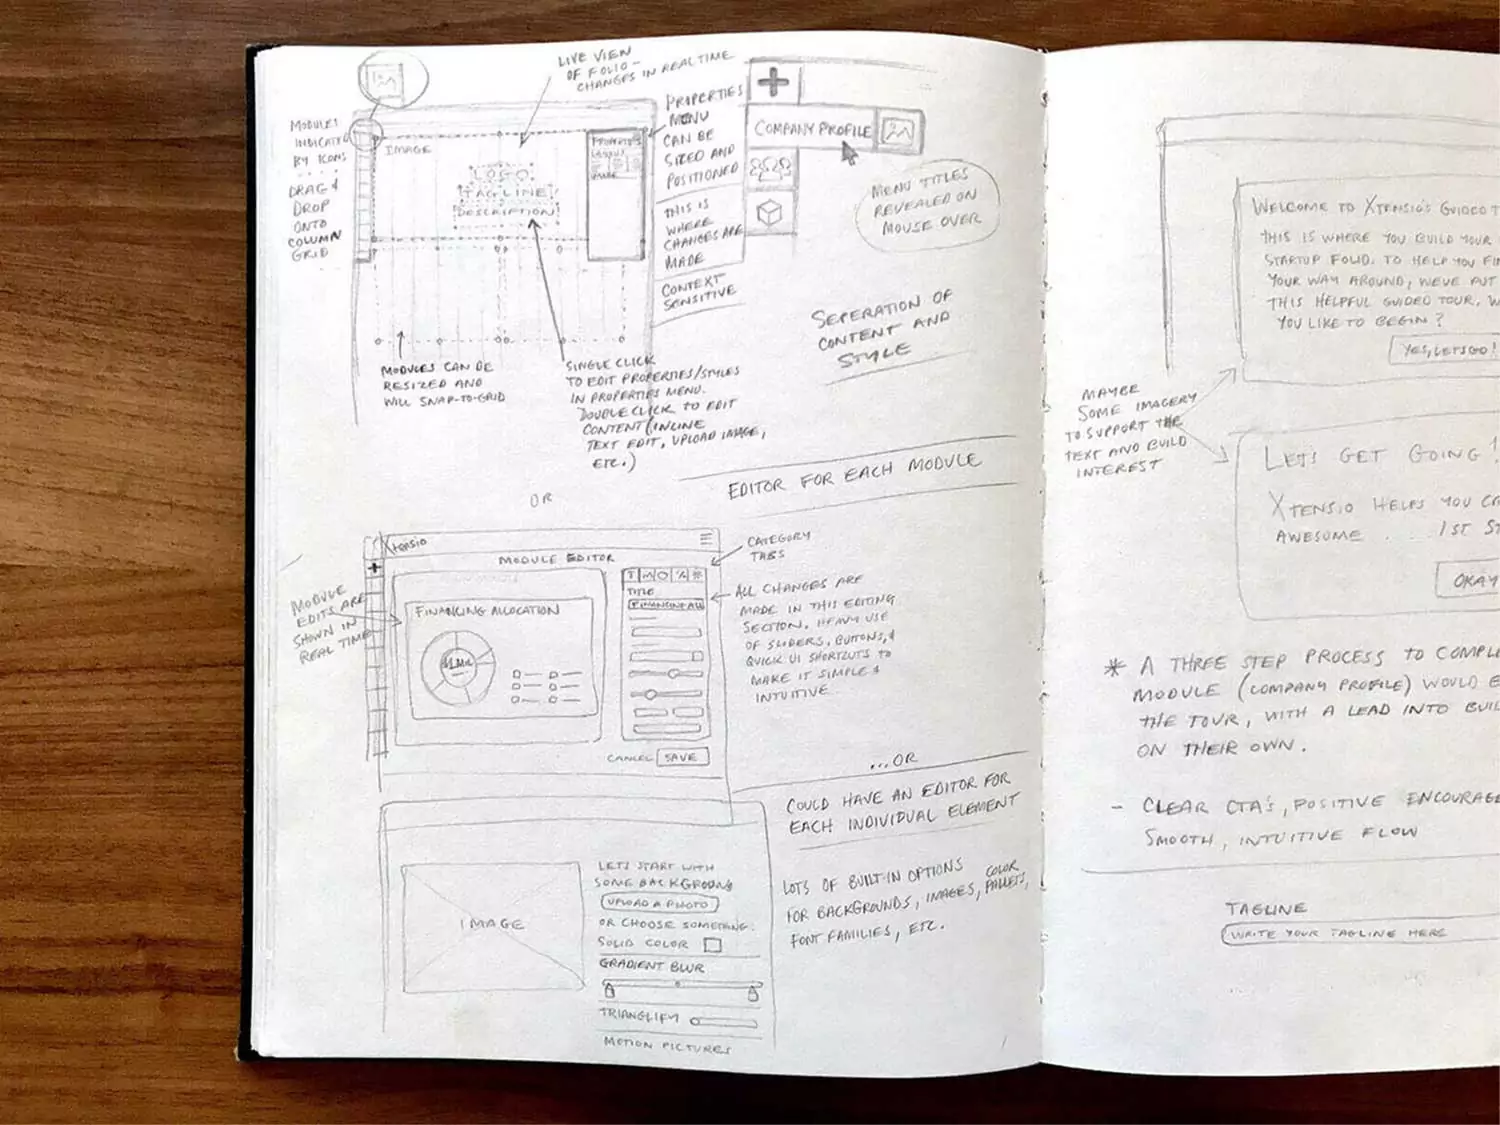 LIVE VIEW
OF FOLIO –
CHANGES IN REAL TIME
MODULES
INDICATED
BY ICONS
DRAG &
DROP
ONTO
COLUMN
GRID
IMAGE
LOGO
TAGLINE
DESCRIPTION
PROPERTIES
PROPERTIES
MENU
CAN BE
SIZED AND
POSITIONED
THIS IS
WHERE
CHANGES ARE
MADE
CONTEXT
SENSITIVE
COMPANY PROFILE
MENU TITLES
REVEALED ON
MOUSE OVER
SEPERATION OF
CONTENT AND
STYLE
MODULES CAN BE
RESIZED AND
WILL SNAP-TO-GRID
SINGLE CLICK
TO EDIT PROPERTIES/STYLES
IN PROPERTIES MENU.
DOUBLE CLICK TO EDIT
CONTENT (INLINE
TEXT EDIT, UPLOAD IMAGE,
ETC.)
OR
EDITOR FOR EACH MODULE
Xtensio
MODULE EDITOR
CATEGORY
TABS
MODULE
EDITS ARE
SHOWN IN
REAL TIME
FINANCING ALLOCATION
T
TITLE
FINANCING ALL
ALL CHANGES ARE
MADE IN THIS EDITING
SECTION. HEAVY USE
OF SLIDERS, BUTTONS, &
QUICK UI SHORTCUTS TO
MAKE IT SIMPLE &
INTUITIVE
CANCEL SAVE
...OR
COULD HAVE AN EDITOR FOR
EACH INDIVIDUAL ELEMENT
IMAGE
LETS START WITH
SOME BACKGROUND
UPLOAD A PHOTO
OR CHOOSE SOMETHING:
SOLID COLOR
GRADIENT BLUR
TRIANGLIFY
MOTION PICTURES
LOTS OF BUILT-IN OPTIONS
FOR BACKGROUNDS, IMAGES, COLOR PALLETS,
FONT FAMILIES, ETC.
WELCOME TO XTENSIO'S GUIDED T
THIS IS WHERE YOU BUILD YOUR
STARTUP FOLIO. TO HELP YOU FI
YOUR WAY AROUND, WE'VE PUT
THIS HELPFUL GUIDED TOUR. W
YOU LIKE TO BEGIN?
YES, LETS GO!
MAYBE
SOME IMAGERY
TO SUPPORT THE
TEXT AND BUILD
INTEREST
LETS GET GOING!
XTENSIO HELPS YOU C
AWESOME ... 1ST ST
OKAY
* A THREE STEP PROCESS TO COMPLE
MODULE (COMPANY PROFILE) WOULD E
THE TOUR, WITH A LEAD INTO BUIL
ON THEIR OWN.
- CLEAR CTA'S, POSITIVE ENCOURAGE
SMOOTH, INTUITIVE FLOW
TAGLINE
WRITE YOUR TAGLINE HERE